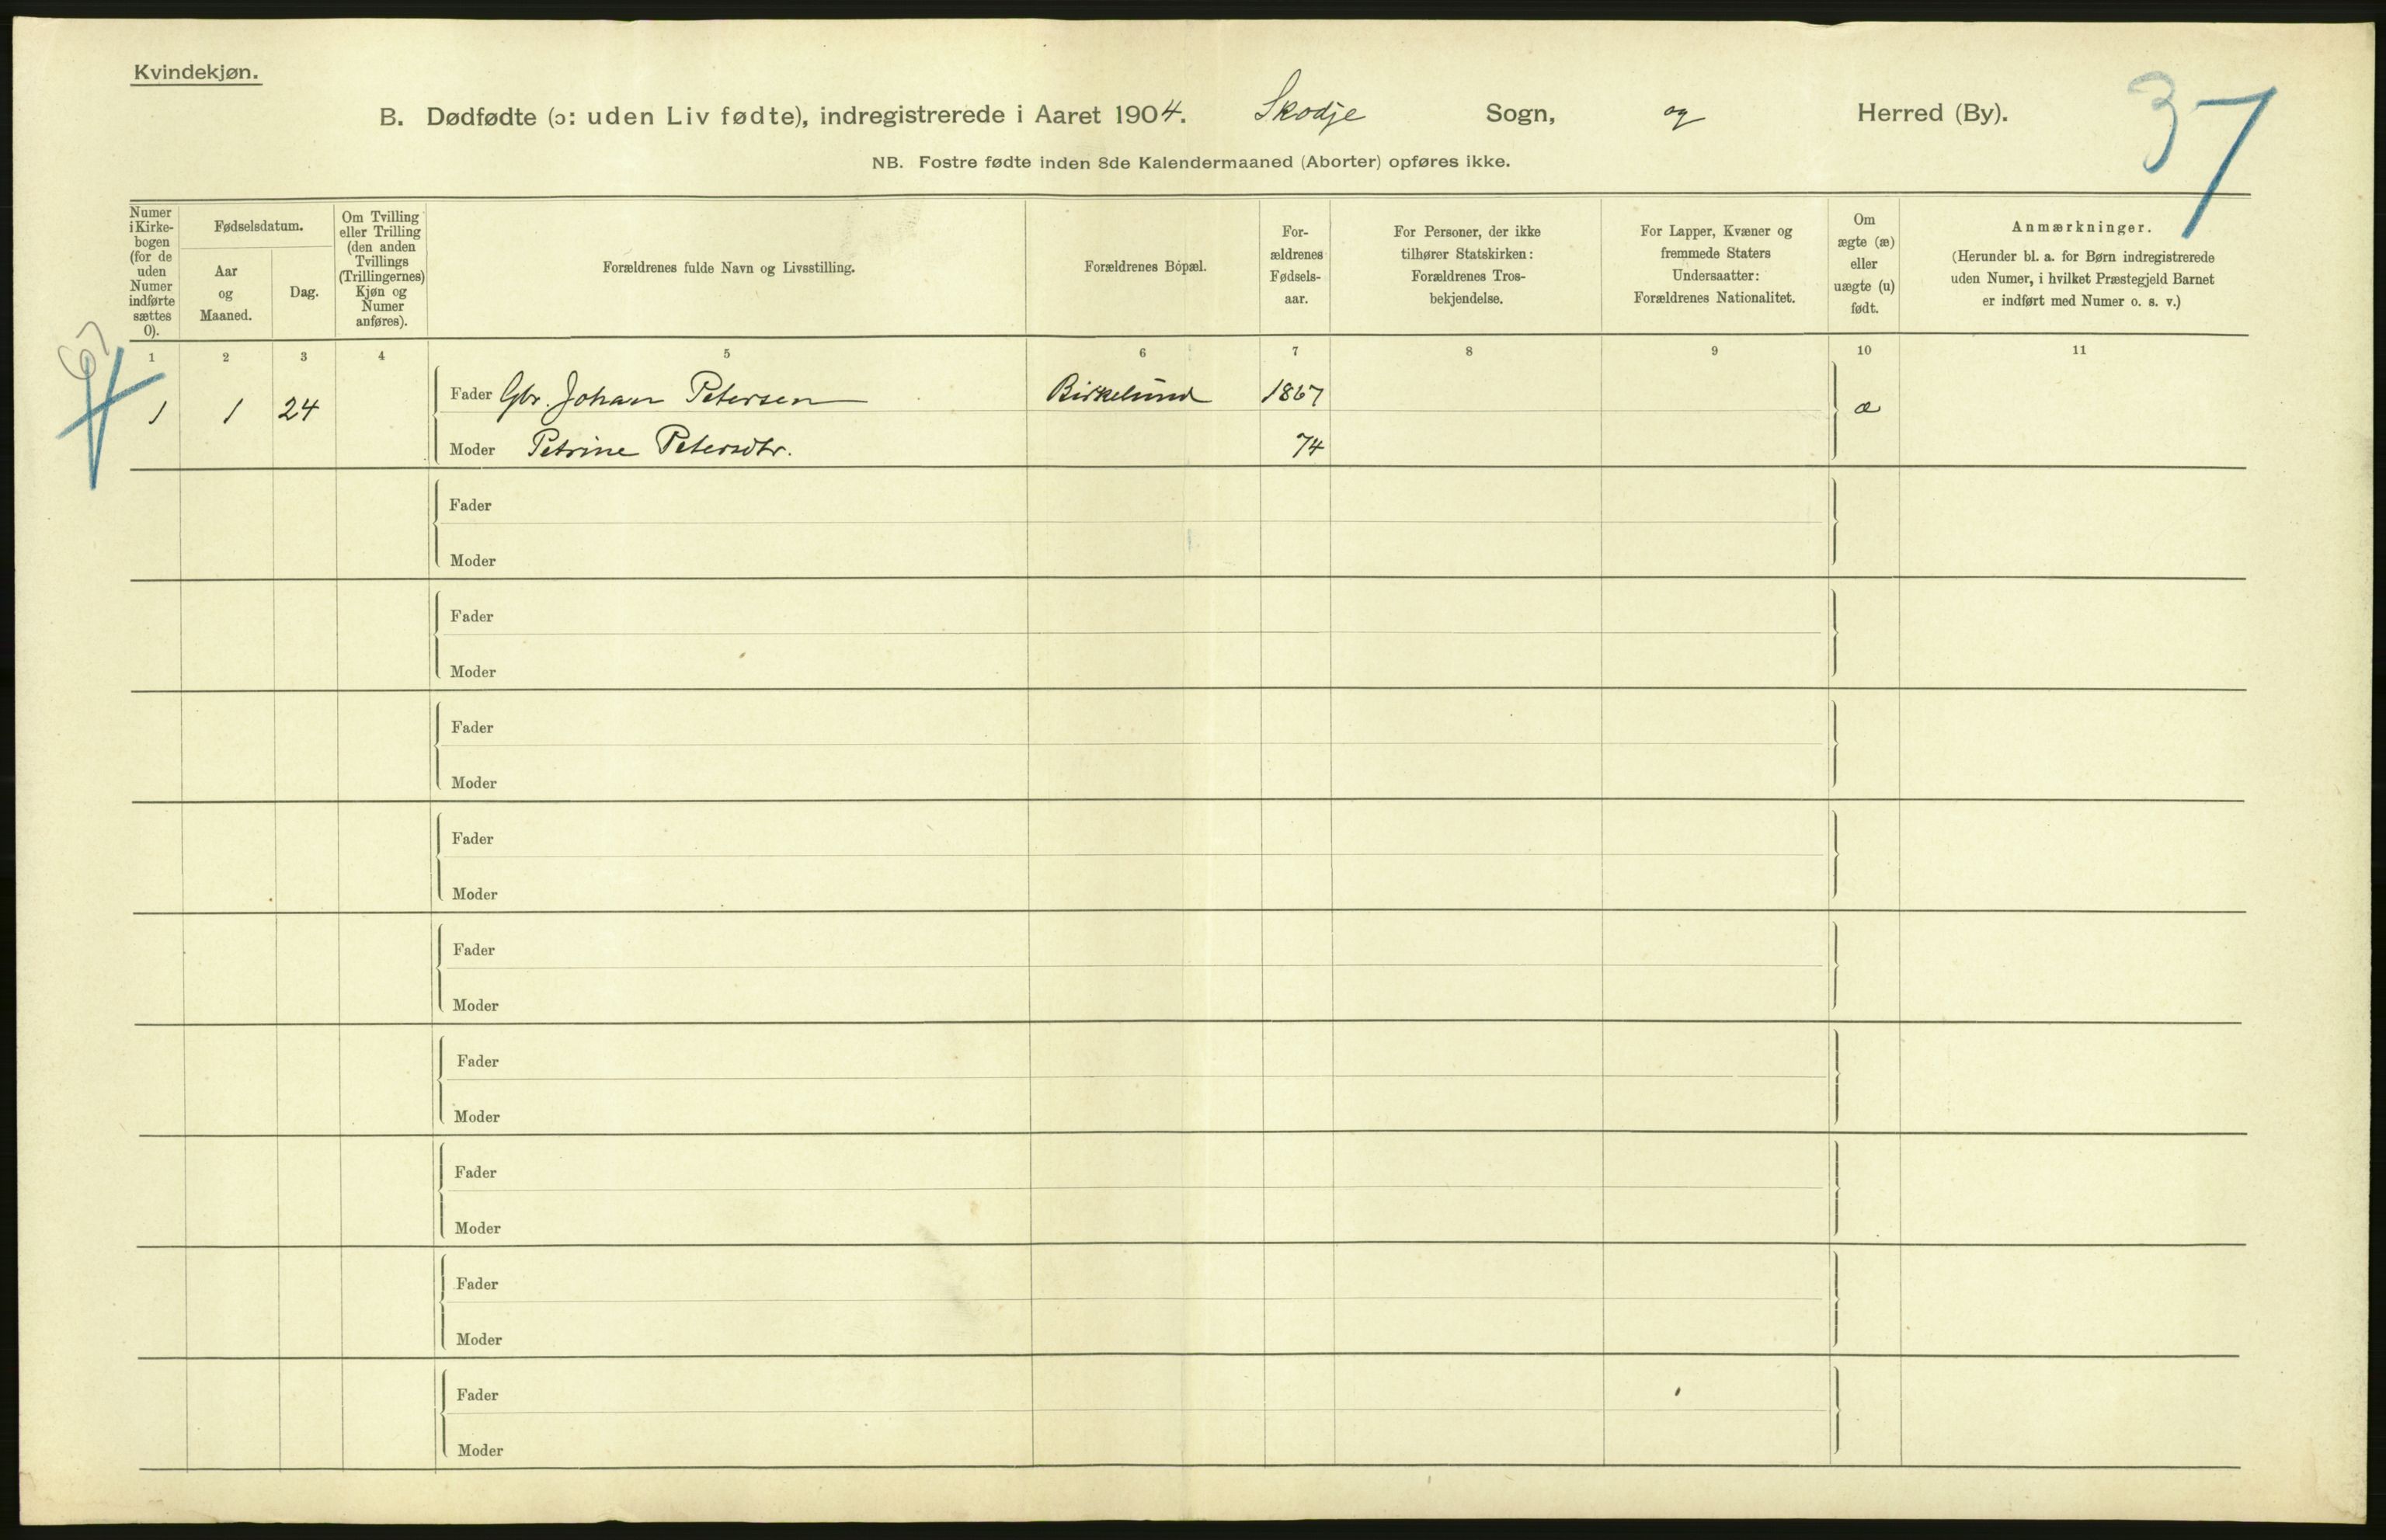 Kvindekjøn.
37
B. Dødfødte (ɔ: uden Liv fødte), indregistrerede i Aaret 1904. Skodje Sogn, og Herred (By).
NB. Fostre fødte inden 8de Kalendermaaned (Aborter) opføres ikke.
Numer
i Kirke-
bogen
(for de
uden
Numer
indførte
sættes
0).
Fødselsdatum.
Aar
og
Maaned.
Dag.
Om Tvilling
eller Trilling
(den anden
Tvillings
(Trillingernes)
Kjøn og
Numer
anføres).
Forældrenes fulde Navn og Livsstilling.
Forældrenes Bopæl.
For-
ældrenes
Fødsels-
aar.
For Personer, der ikke
tilhører Statskirken:
Forældrenes Tros-
bekjendelse.
For Lapper, Kvæner og
fremmede Staters
Undersaatter:
Forældrenes Nationalitet.
Om
ægte (æ)
eller
uægte (u)
født.
Anmærkninger.
(Herunder bl. a. for Børn indregistrerede
uden Numer, i hvilket Præstegjeld Barnet
er indført med Numer o. s. v.)
1 2 3 4 5 6 7 8 9 10 11
1 1 24 Fader Gbr. Johan Petersen Birkelund 1867 æ
Moder Petrine Petersdtr. 74
Fader
Moder
Fader
Moder
Fader
Moder
Fader
Moder
Fader
Moder
Fader
Moder
Fader
Moder
Fader
Moder
Fader
Moder